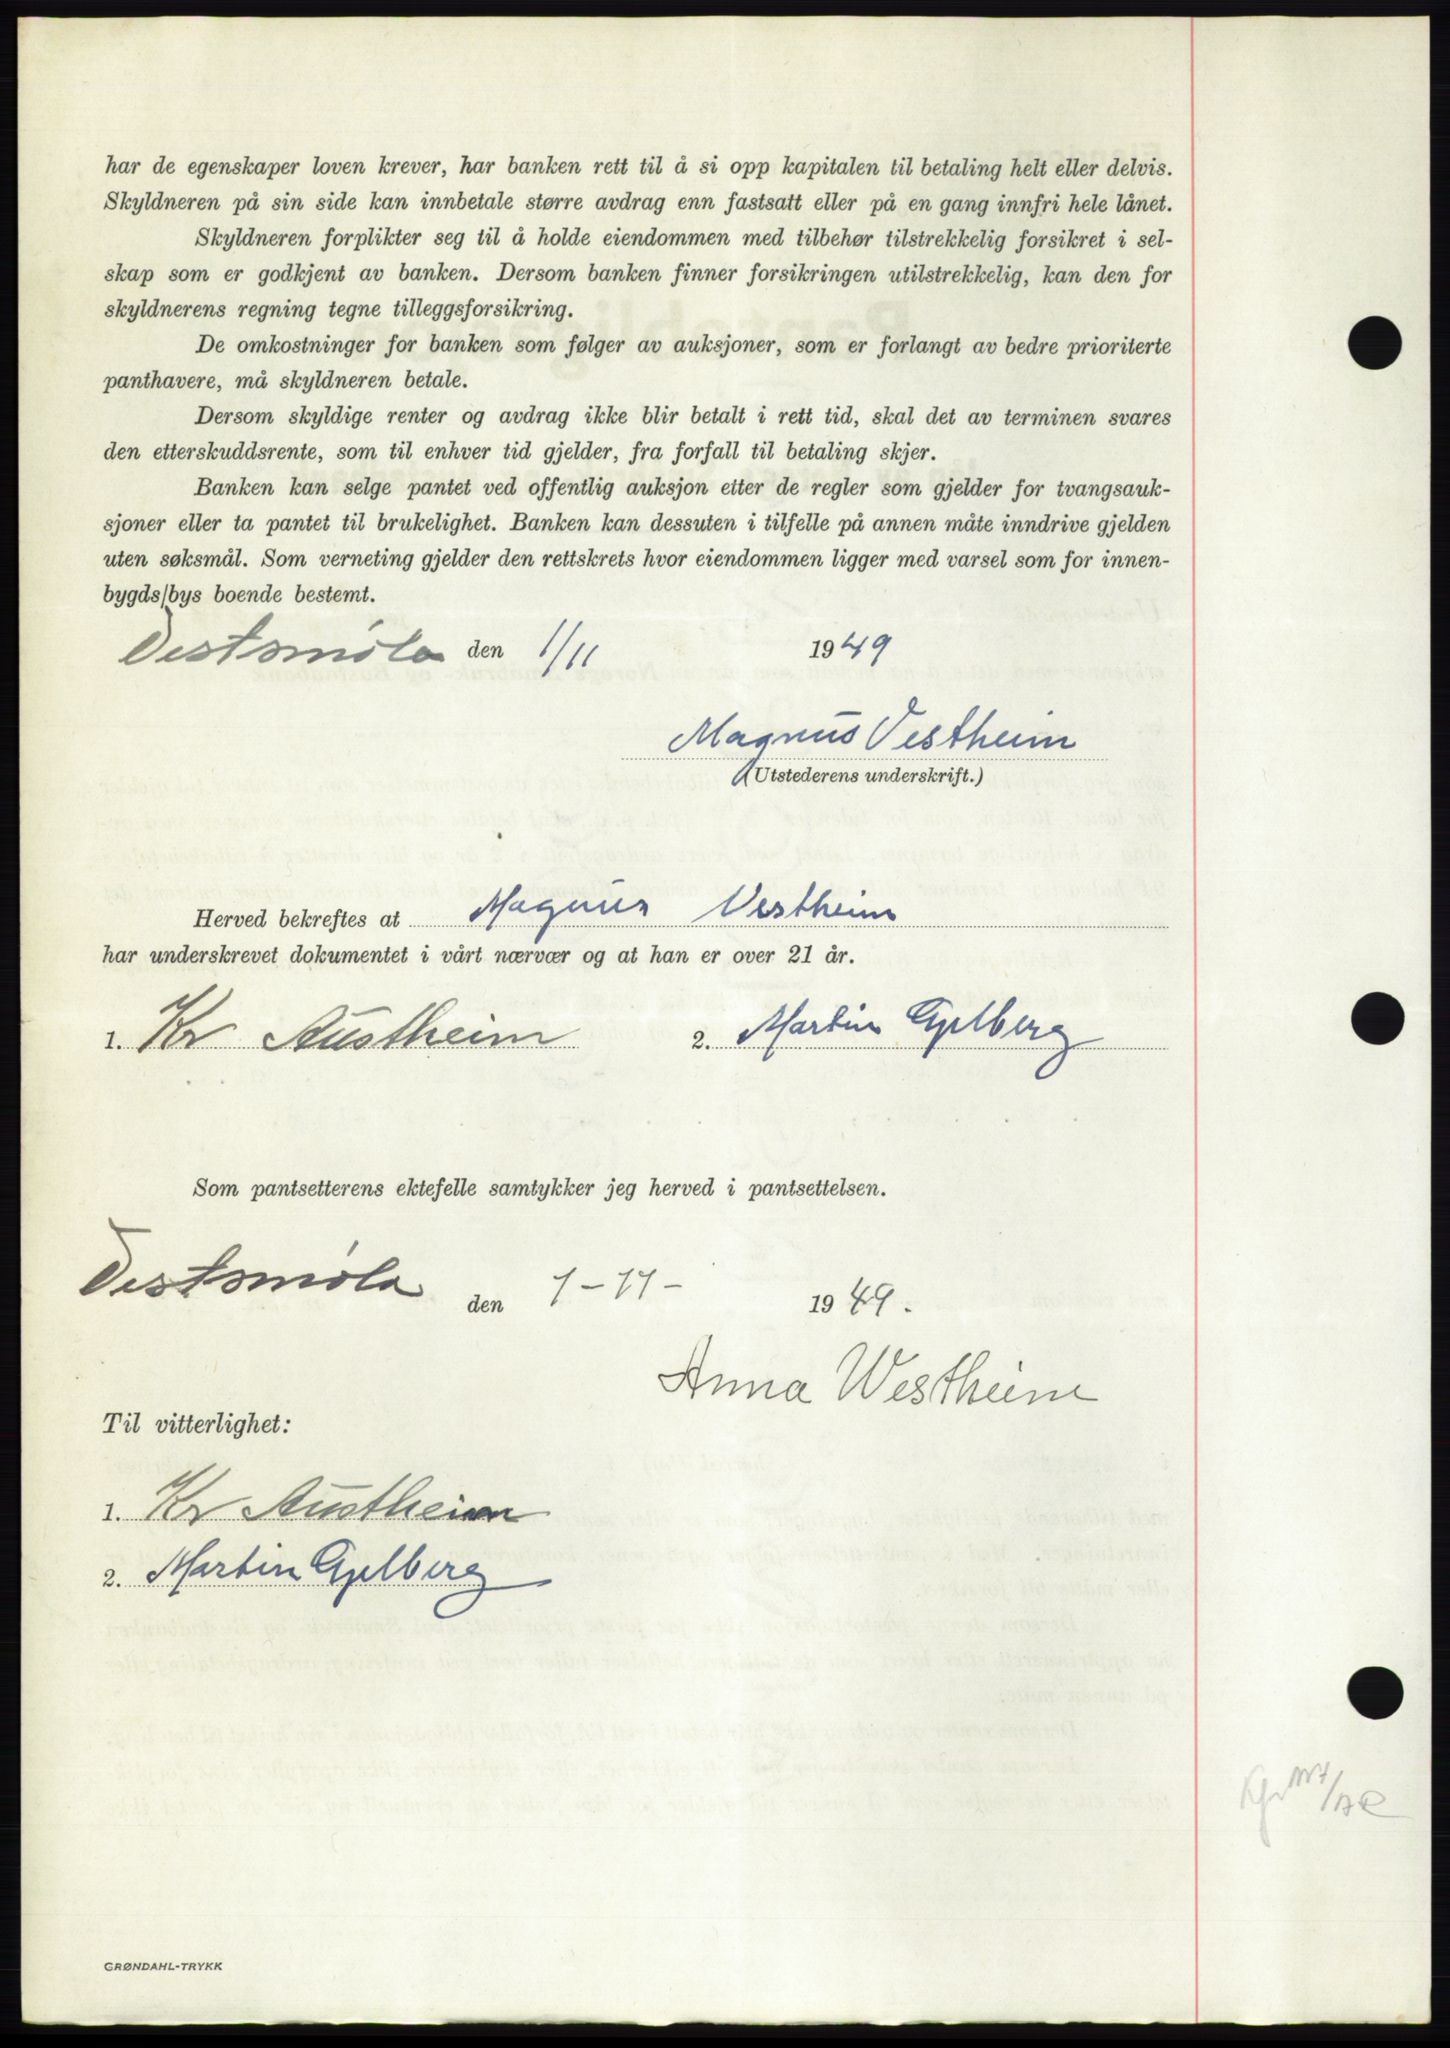 har de egenskaper loven krever, har banken rett til å si opp kapitalen til betaling helt eller delvis.
Skyldneren på sin side kan innbetale større avdrag enn fastsatt eller på en gang innfri hele lånet.
Skyldneren forplikter seg til å holde eiendommen med tilbehør tilstrekkelig forsikret i sel-
skap som er godkjent av banken. Dersom banken finner forsikringen utilstrekkelig, kan den for
skyldnerens regning tegne tilleggsforsikring.
De omkostninger for banken som følger av auksjoner, som er forlangt av bedre prioriterte
panthavere, må skyldneren betale.
Dersom skyldige renter og avdrag ikke blir betalt i rett tid, skal det av terminen svares
den etterskuddsrente, som til enhver tid gjelder, fra forfall til betaling skjer.
Banken kan selge pantet ved offentlig auksjon etter de regler som gjelder for tvangsauk-
sjoner eller ta pantet til brukelighet. Banken kan dessuten i tilfelle på annen måte inndrive gjelden
uten søksmål. Som verneting gjelder den rettskrets hvor eiendommen ligger med varsel som for innen-
bygds/bys boende bestemt.
Vestsmøla den 1/11 1949
Magnus Vestheim
(Utstederens underskrift.)
Herved bekreftes at Magnus Vestheim
har underskrevet dokumentet i vårt nærvær og at han er over 21 år.
1. Kr Austheim 2. Martin Gjelberg
Som pantsetterens ektefelle samtykker jeg herved i pantsettelsen.
Vestsmøla den 1-11- 1949.
Anna Westheim
Til vitterlighet:
1. Kr Austheim
2. Martin Gjelberg
GRØNDAHL-TRYKK